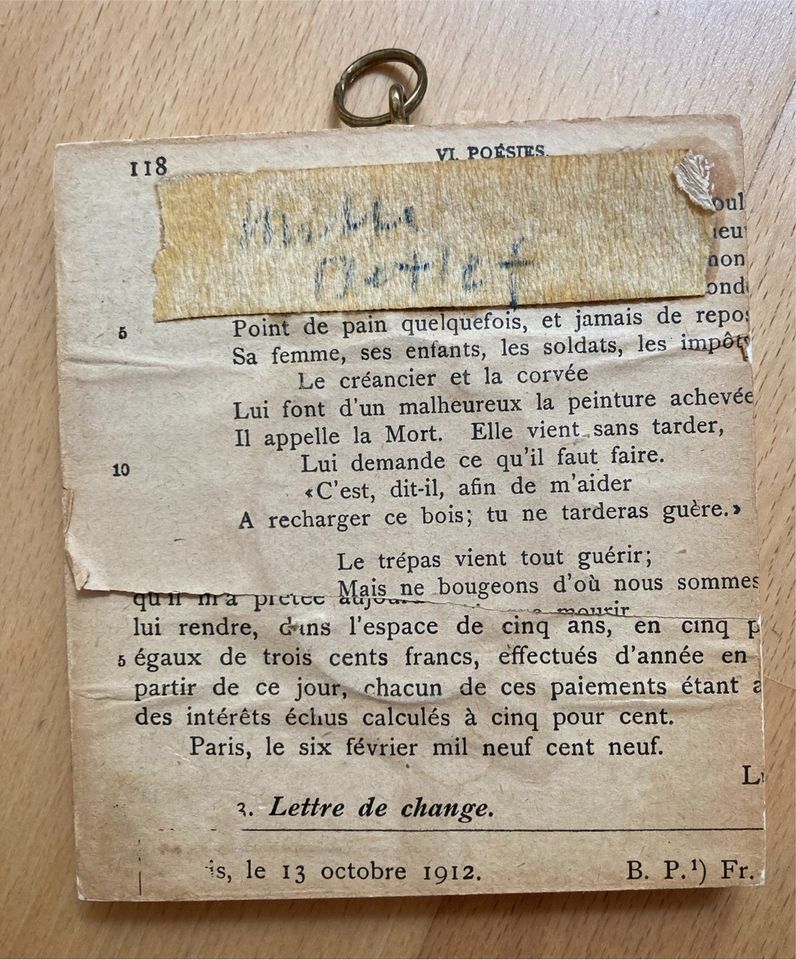 118
VI. POÉSIES.
5 Point de pain quelquefois, et jamais de repos
Sa femme, ses enfants, les soldats, les impôts
Le créancier et la corvée
Lui font d'un malheureux la peinture achevée
Il appelle la Mort. Elle vient sans tarder,
10 Lui demande ce qu'il faut faire.
«C'est, dit-il, afin de m'aider
A recharger ce bois; tu ne tarderas guère.»
Le trépas vient tout guérir;
Mais ne bougeons d'où nous sommes
mourir
qu'il m'a prêtée
lui rendre, dans l'espace de cinq ans, en cinq p
5 égaux de trois cents francs, effectués d'année en
partir de ce jour, chacun de ces paiements étant a
des intérêts échus calculés à cinq pour cent.
Paris, le six février mil neuf cent neuf.
3. Lettre de change.
is, le 13 octobre 1912. B. P.¹) Fr.